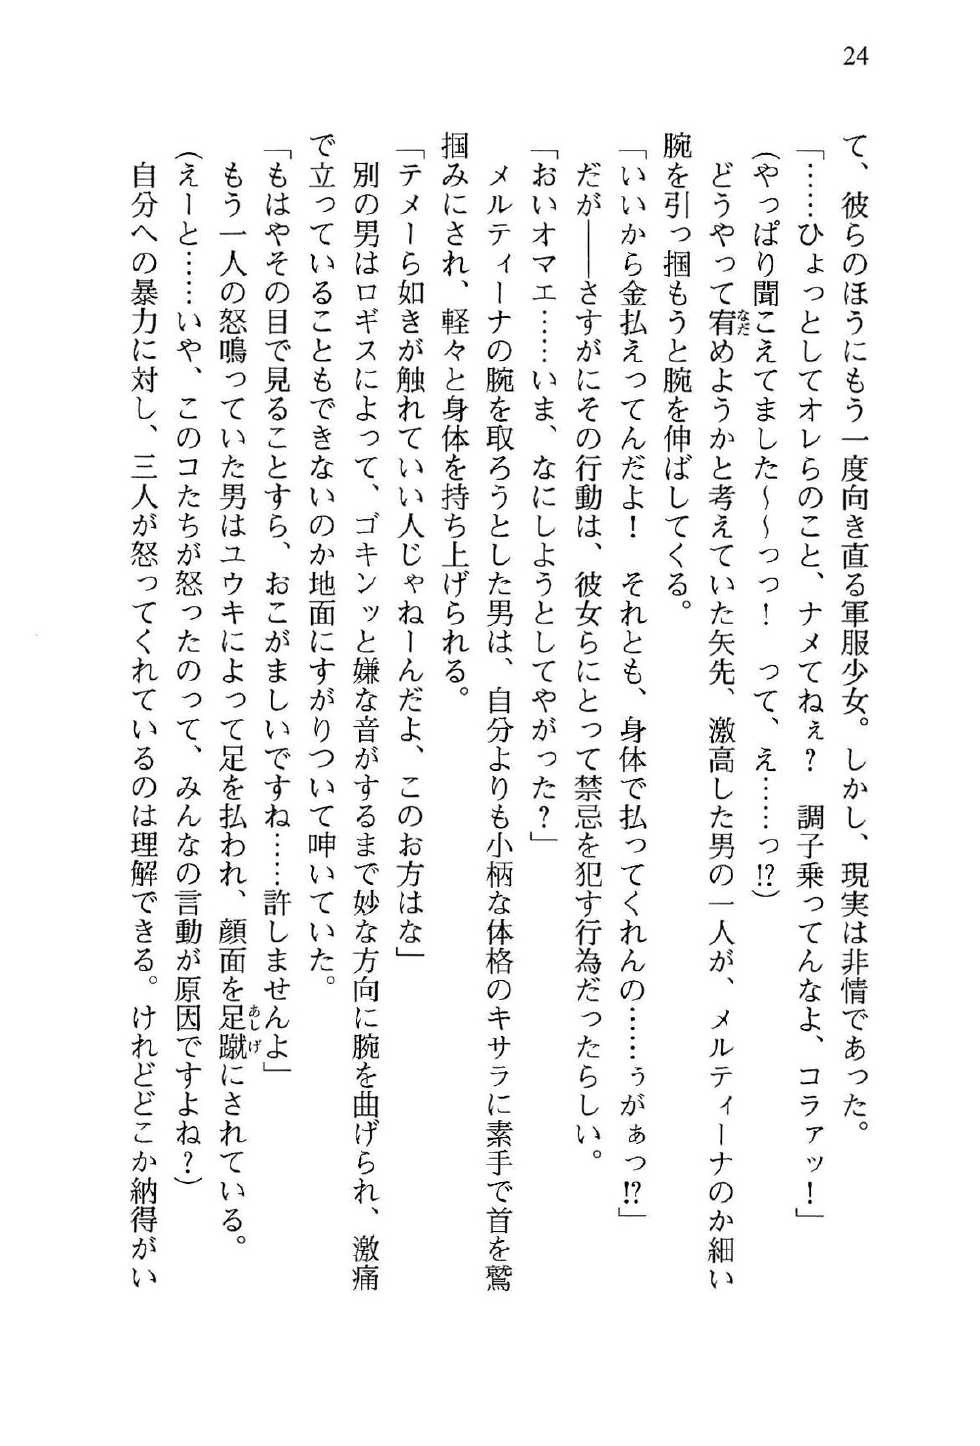 24
て、彼らのほうにもう一度向き直る軍服少女。しかし、現実は非情であった。
「……ひょっとしてオレらのこと、ナメてねぇ？　調子乗ってんなよ、コラァッ！」
（やっぱり聞こえてました〜〜っっ！　って、え……っ!?）
どうやって宥なだめようかと考えていた矢先、激高した男の一人が、メルティーナのか細い
腕を引っ掴もうと腕を伸ばしてくる。
「いいから金払えってんだよ！　それとも、身体で払ってくれんの……ぅがぁっ!?」
だが――さすがにその行動は、彼女らにとって禁忌を犯す行為だったらしい。
「おいオマエ……いま、なにしようとしてやがった？」
メルティーナの腕を取ろうとした男は、自分よりも小柄な体格のキサラに素手で首を鷲
掴みにされ、軽々と身体を持ち上げられる。
「テメーら如きが触れていい人じゃねーんだよ、このお方はな」
別の男はロギスによって、ゴキンッと嫌な音がするまで妙な方向に腕を曲げられ、激痛
で立っていることもできないのか地面にすがりついて呻いていた。
「もはやその目で見ることすら、おこがましいですね……許しませんよ」
もう一人の怒鳴っていた男はユウキによって足を払われ、顔面を足蹴あしげにされている。
（えーと……いや、このコたちが怒ったのって、みんなの言動が原因ですよね？）
自分への暴力に対し、三人が怒ってくれているのは理解できる。けれどどこか納得がい